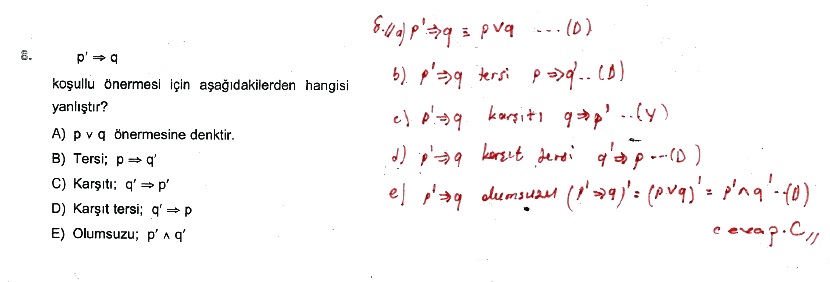 8.
p' ⇒ q
koşullu önermesi için aşağıdakilerden hangisi
yanlıştır?
A) p ∨ q önermesine denktir.
B) Tersi; p ⇒ q'
C) Karşıtı; q' ⇒ p'
D) Karşıt tersi; q' ⇒ p
E) Olumsuzu; p' ∧ q'
8.// a) p' ⇒ q ≡ p∨q ... (D)
b) p' ⇒ q tersi p ⇒ q' .. (D)
c) p' ⇒ q karşıtı q ⇒ p' .. (Y)
d) p' ⇒ q karşıt tersi q' ⇒ p ... (D)
e) p' ⇒ q olumsuzu (p' ⇒ q)' = (p∨q)' = p' ∧ q' .. (D)
cevap. C //